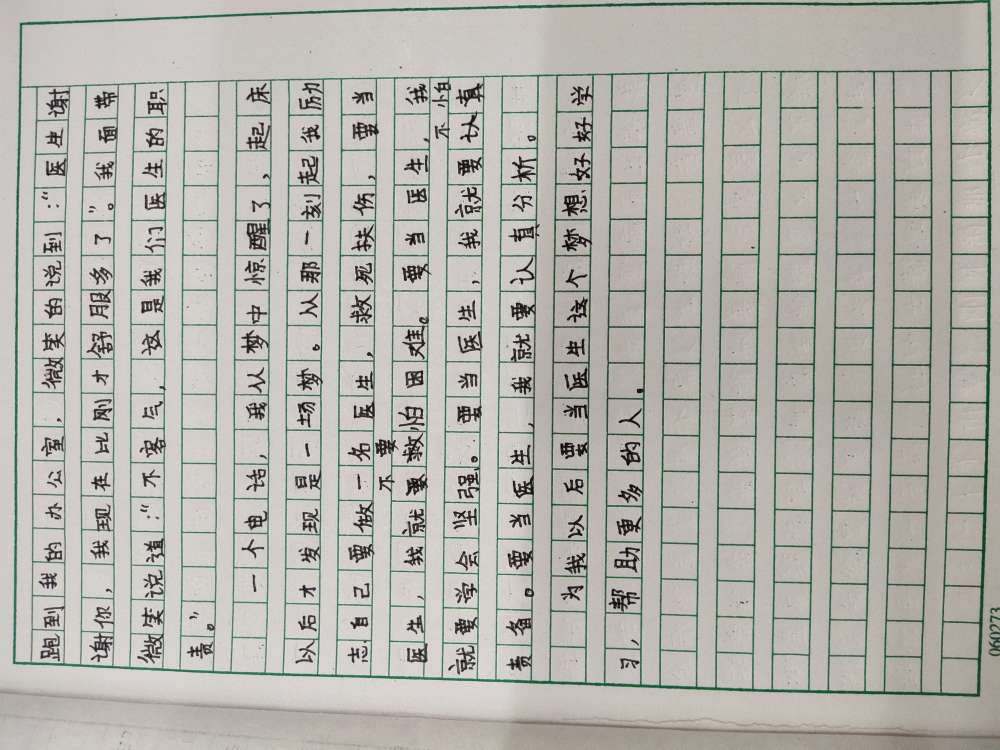 跑到我的办公室，微笑的说到：“医生谢
谢你，我现在比刚才舒服多了”。我面带
微笑说道：“不客气，这是我们医生的职
责。”
一个电话，我从梦中惊醒了，起床
以后才发现是一场梦。从那一刻起我励
志自己要做一名医生，救死扶伤，要当
不要
医生，我就要救怕困难。要当医生，我
不怕
就要学会坚强。要当医生，我就要认真
责备。要当医生，我就要认真分析。
为我以后要当医生这个梦想好好学
习，帮助更多的人.
060273